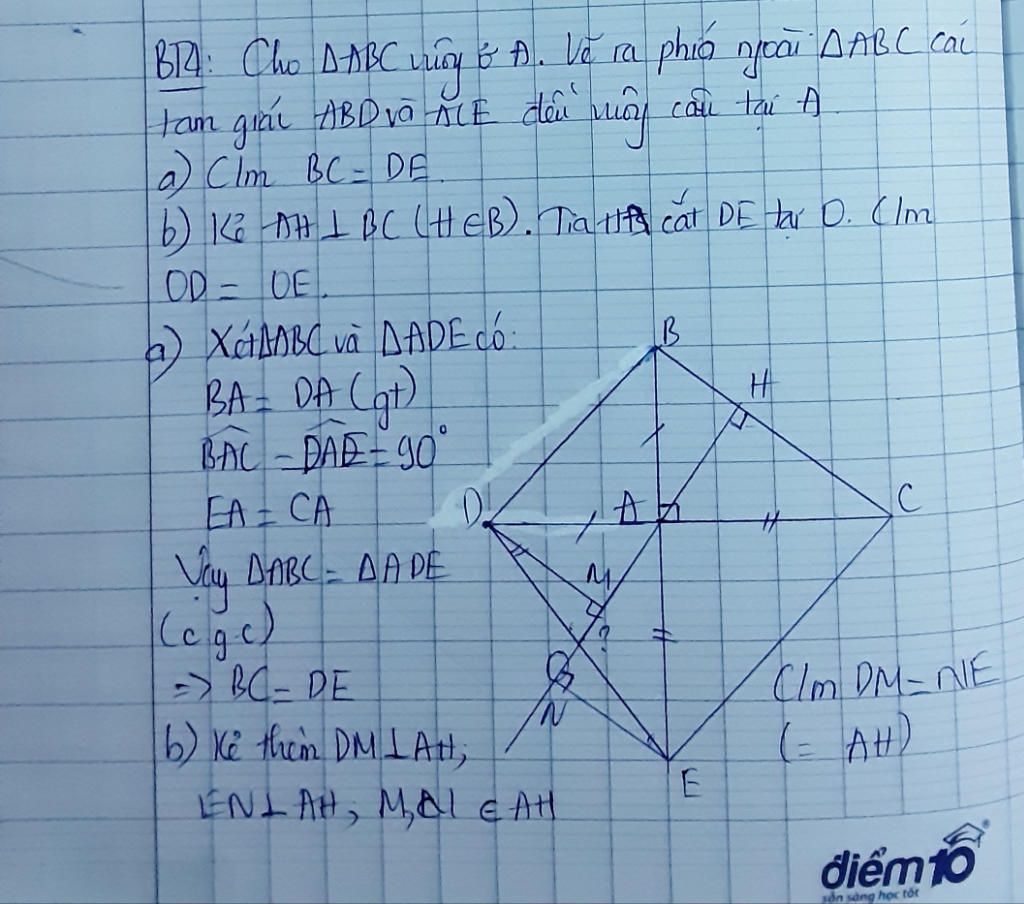 BT4: Cho ΔABC vuông ở A. Vẽ ra phía ngoài ΔABC các
tam giác ABD và ACE đều vuông cân tại A
a) C/m BC = DE.
b) Kẻ AH ⊥ BC (H ∈ B). Tia HA cắt DE tại O. C/m
OD = OE.
a) Xét ΔABC và ΔADE có:
BA = DA (gt)
BAC = DAE = 90°
EA = CA
Vậy ΔABC = ΔADE
(c g c)
=> BC = DE
b) Kẻ thêm DM ⊥ AH;
EN ⊥ AH; M, N ∈ AH
B
H
D
A
C
M
?
O
N
E
C/m DM = NE
(= AH)
điểm 10
sẵn sàng học tốt